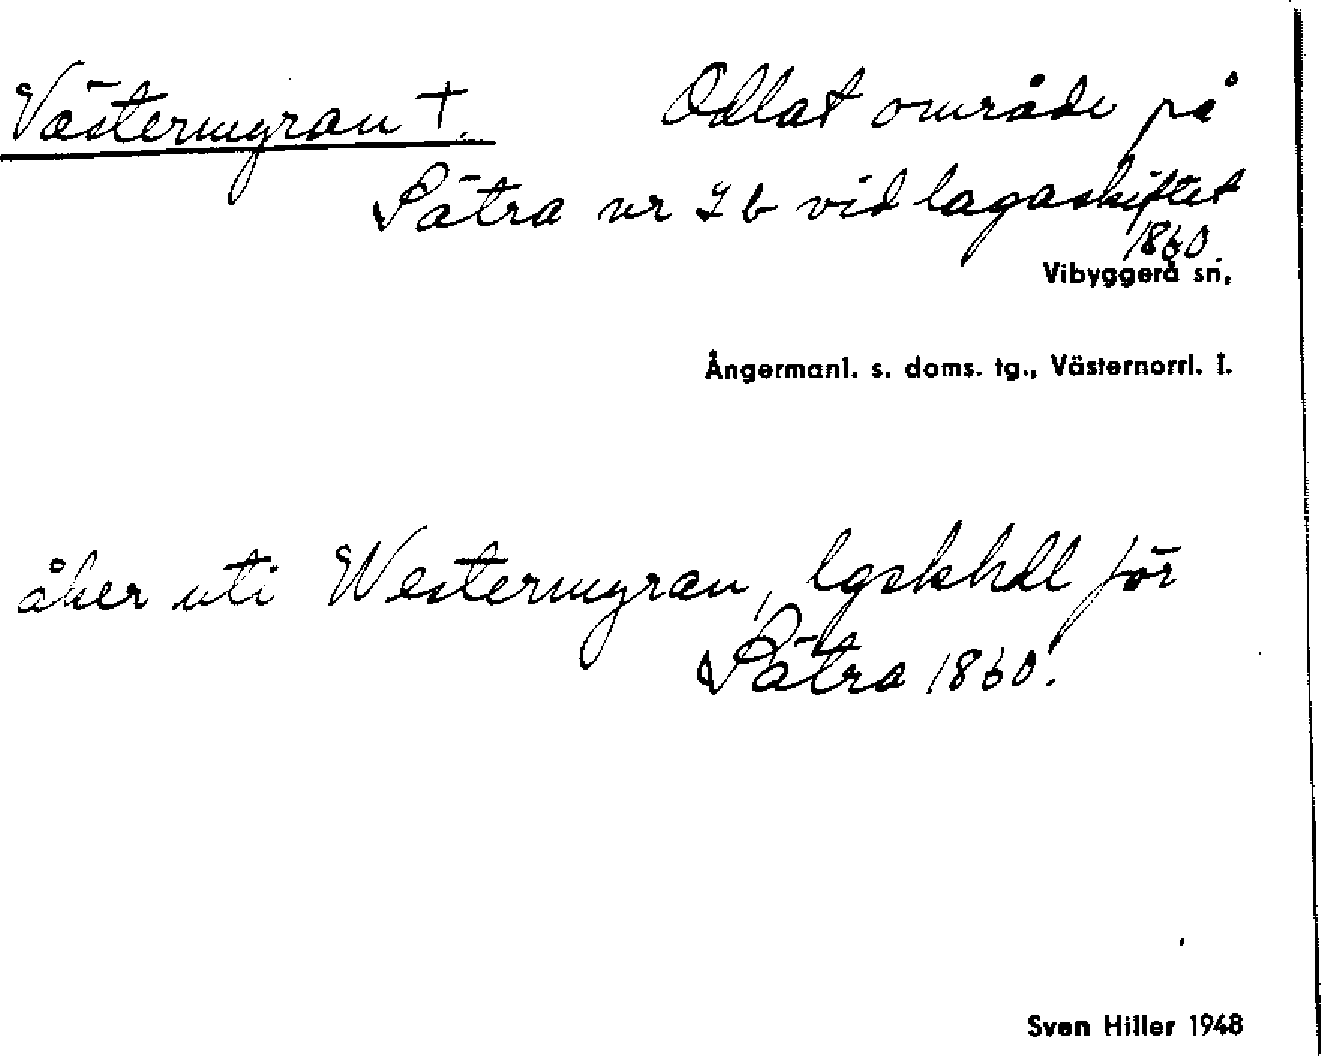 Västermyran †. Odlat område på
Sätra nr 2 b vid lagaskiftet
1860.
Vibyggerå sn,
Ångermanl. s. doms. tg., Västernorrl. l.
åker uti Westermyran, lgskhdl för
Sätra 1860.
Sven Hiller 1948